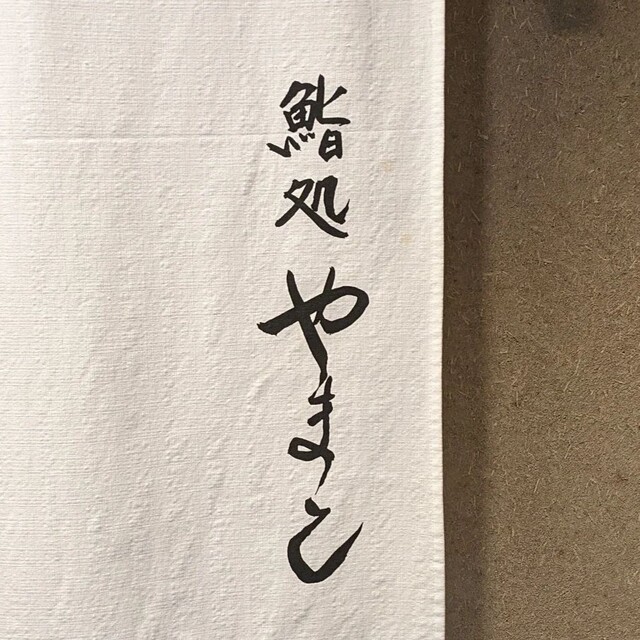 鮨処 やまこ